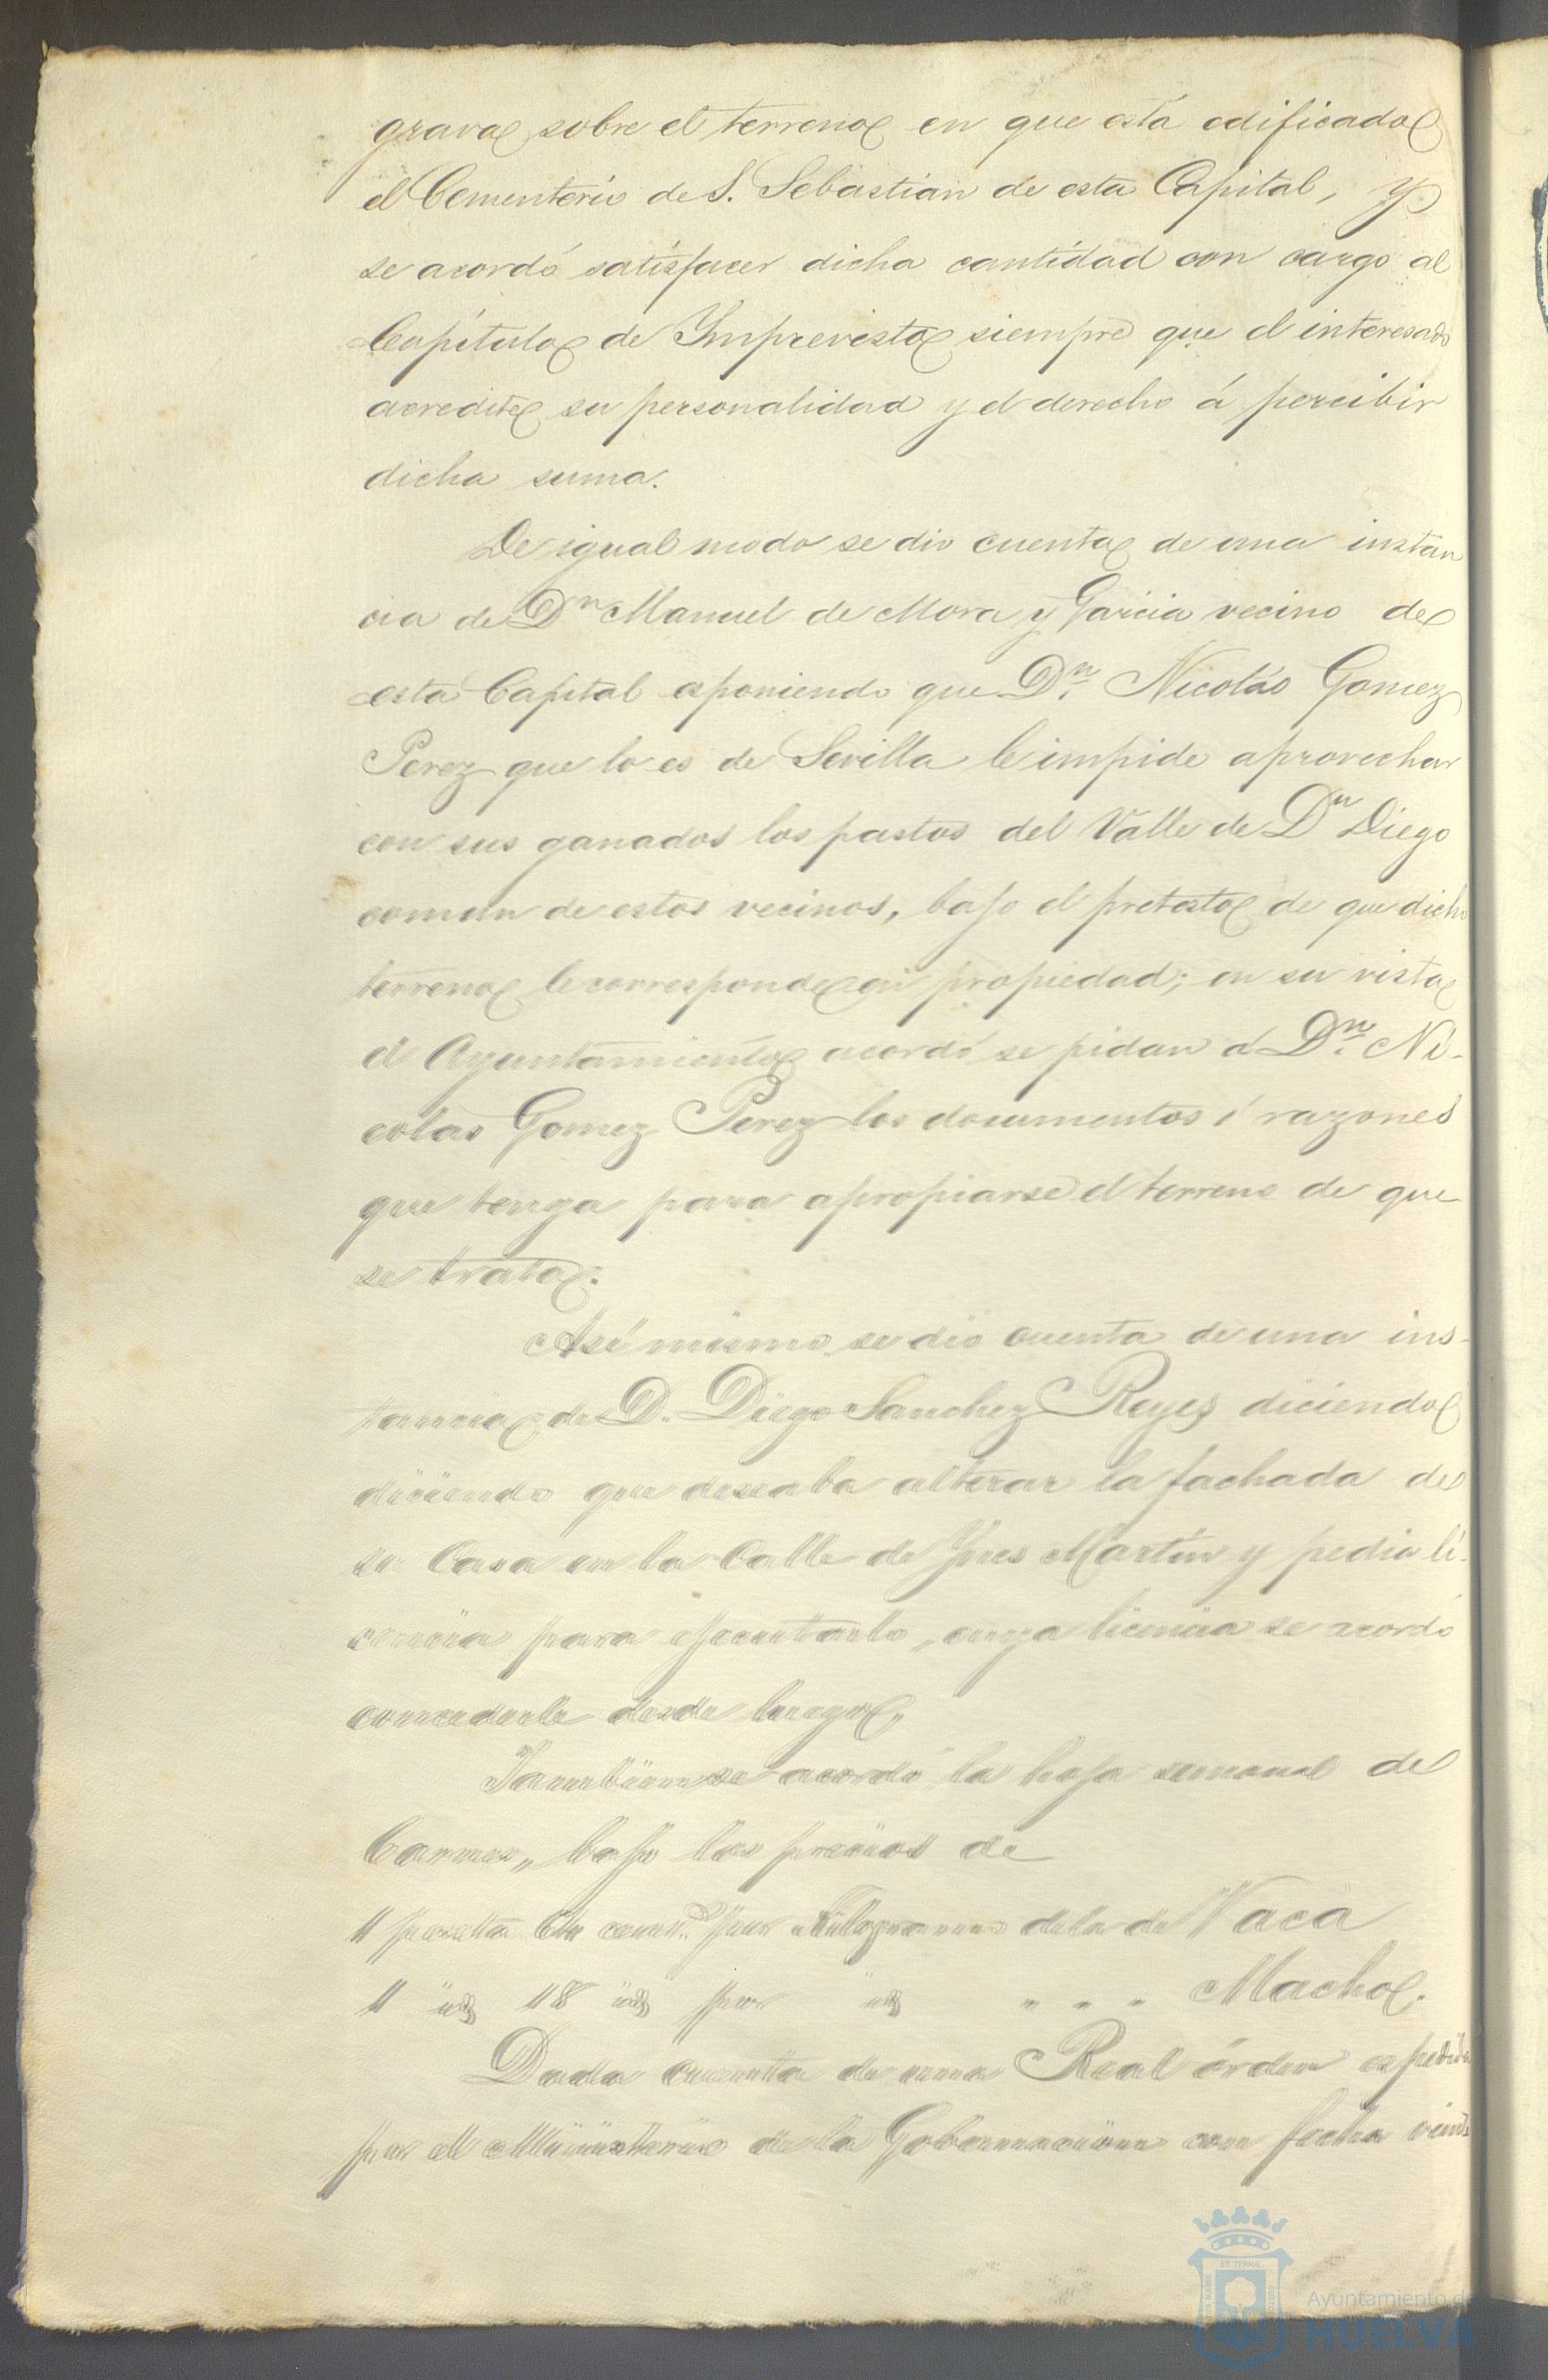 grava sobre el terreno en que está edificado
el Cementerio de S. Sebastian de esta Capital, y
se acordó satisfacer dicha cantidad con cargo al
Capítulo de Ymprevisto siempre que el interesado
acredite su personalidad y el derecho á percibir
dicha suma.
De igual modo se dio cuenta de una instan
cia de Dn Manuel de Mora y Garcia vecino de
esta Capital esponiendo que Dn. Nicolás Gomez
Perez que lo es de Sevilla le impide aprovechar
con sus ganados los pastos del Valle de Dn Diego
comun de estos vecinos, bajo el pretesto de que dicho
terreno le corresponde en propiedad; en su vista
el Ayuntamiento acordó se pidan á Dn. Ni-
colas Gomez Perez los documentos ó razones
que tenga para apropiarse el terreno de que
se trata.
Asi mismo se dio cuenta de una ins-
tancia de D. Diego Sanchez Reyes diciendo
diciendo que deseaba alterar la fachada de
su Casa en la Calle de Ynes Martin y pedia li-
cencia para ejecutarlo, cuya licencia se acordó
concederle desde luego.
Tambien se acordó la baja semanal de
Carnes, bajo los precios de
1 peseta cent. por Kilogramo de la de Vaca
1 id 18 id por id " " " Macho.
Dada cuenta de una Real órden espedida
por el Ministerio de la Gobernacion con fecha veinte
Ayuntamiento de
HUELVA